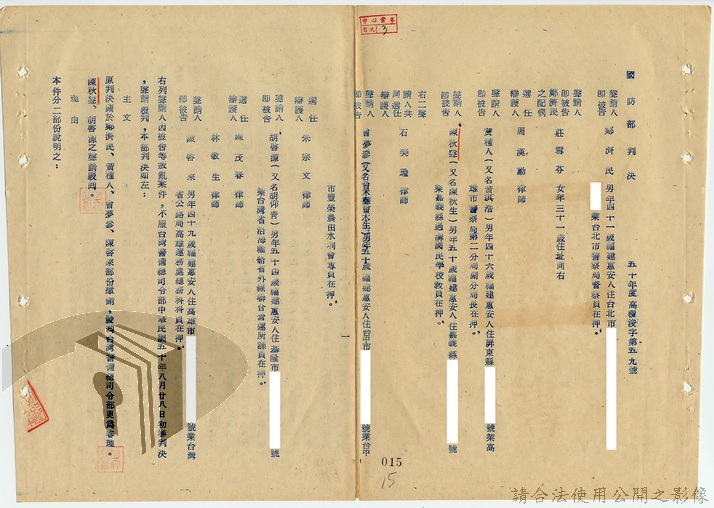 國防部判決
五十年度高覆字第五九號
聲請人
即被告
鄭濟民 男年四十一歲福建惠安人住台北市
號業台北市警察局警察員在押。
聲請人
即被告
鄭濟民
之配偶
莊雪芬 女年三十一歲住址同右
選任
辯護人
周漢勳律師
聲請人
即被告
黃種人(又名黃淇浩)男年四十六歲福建惠安人住屏東縣 號業高
雄市警察局第二分局副分局長在押。
聲請人
即被告
陳秋發(又名陳秋生)男年五十歲福建惠安人住嘉義縣 號
業嘉義縣過溝國民學校教員在押。
右二聲
請人共
同選任
辯護人
石美瑜律師
聲請人
即被告
曾夢參 男年五十歲福建惠安人住台中市 號業台中
市豐榮農田水利會專員在押。
選任
辯護人
朱宗文律師
聲請人
即被告
胡啓源(又名胡仰青)男年五十四歲福建惠安人住基隆市 號
業台灣省沿海輪船省外聯合營運所課員在押。
選任
辯護人
陳茂春律師
林敏生律師
聲請人
即被告
陳啓來 男年四十九歲福建惠安人住高雄市 號業台灣
省公路局高雄運務處總務科科員在押。
右列聲請人因被告等叛亂案件,不服台灣警備總司令部中華民國五十年八月廿八日初審判決
,聲請覆判,本部判決如左:
主文
原判決關於鄭濟民、黃種人、曾夢參、陳啓來部份撤銷,發囘台灣警備總司令部更爲審理。
陳秋發、胡啓源之聲請駁囘。
理由
本件分二部份說明之:
一
015
15
3
請合法使用公開之影像